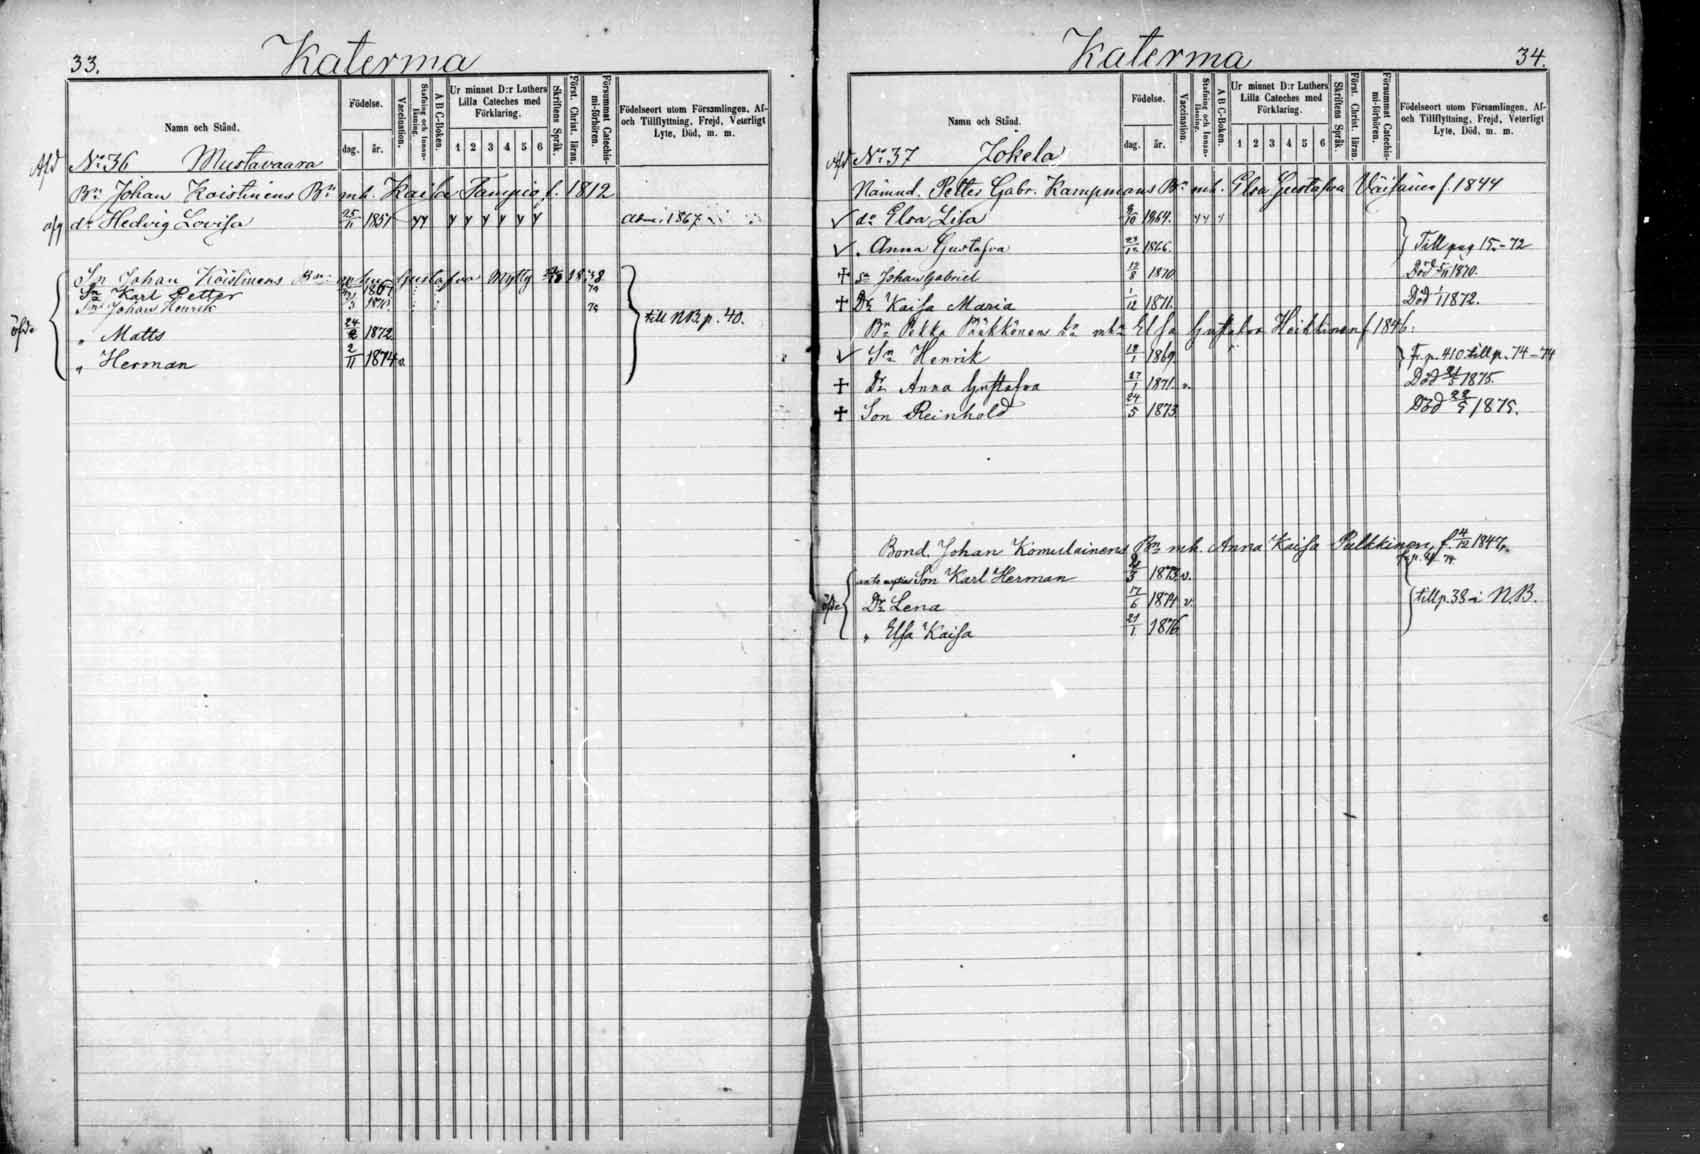 33. Katerma
Namn och Stånd.
Födelse.
dag. år.
Vaccination.
Stafning och Innanläsning.
A B C-Boken.
Ur minnet D:r Luthers Lilla Cateches med Förklaring.
1 2 3 4 5 6
Skriftens Språk.
Först. Christ. läran.
Försummat Catechismi-förhören.
Födelseort utom Församlingen, Af- och Tillflyttning, Frejd, Veterligt Lyte, Död, m. m.
Afd No 36 Mustavaara
Bn Johan Koistinens Bn mh. Kaisa Tampio f. 1812
afg dr Hedvig Lovisa 25/11 1851 y y y y y y y y 1867
Sn Johan Koistinens Gustafva Mylly
Sn Karl Petter 1867
Sn Johan Henrik
öfde „ Matts 24/2 1872 till NB. p. 40.
„ Herman 2/11 1874 v.
Katerma 34.
Namn och Stånd.
Födelse.
dag. år.
Vaccination.
Stafning och Innanläsning.
A B C-Boken.
Ur minnet D:r Luthers Lilla Cateches med Förklaring.
1 2 3 4 5 6
Skriftens Språk
Först. Christ. läran.
Försummat Catechismi-förhören.
Födelseort utom Församlingen, Af- och Tillflyttning, Frejd, Veterligt Lyte, Död, m. m.
Afd No 37 Jokela
Nämnd. Petter Gabr. Kampmans Bn mh. Elsa Gustafva Väisänen f. 1844
dr Elsa Lisa 8/10 1864. y y y
„ Anna Gustafva 23/12 1866. Till pag 15.-72
† Sn Johan Gabriel 12/8 1870 Död 1870.
† Dr Kaisa Maria 1/12 1871. Död 1872.
Bn Pekka Pääkkönens hu mh. Elsa Gustafva Heikkinen f 1846.
Sn Henrik 12/1 1869. Fr. p. 410 till p. 74-74
† Dr Anna Gustafva 27/1 1871. v. Död 21/5 1875.
† Son Reinhold 24/5 1873 Död 22/5 1875.
Bond. Johan Komulainens Bn mh. Anna Kaisa Pulkkinen, f. 14/12 1847.
Son Karl Herman 1873 v.
öfde Dr Lena 17/6 1874 v. till p. 38 i N.B.
„ Elsa Kaisa 21/1 1876